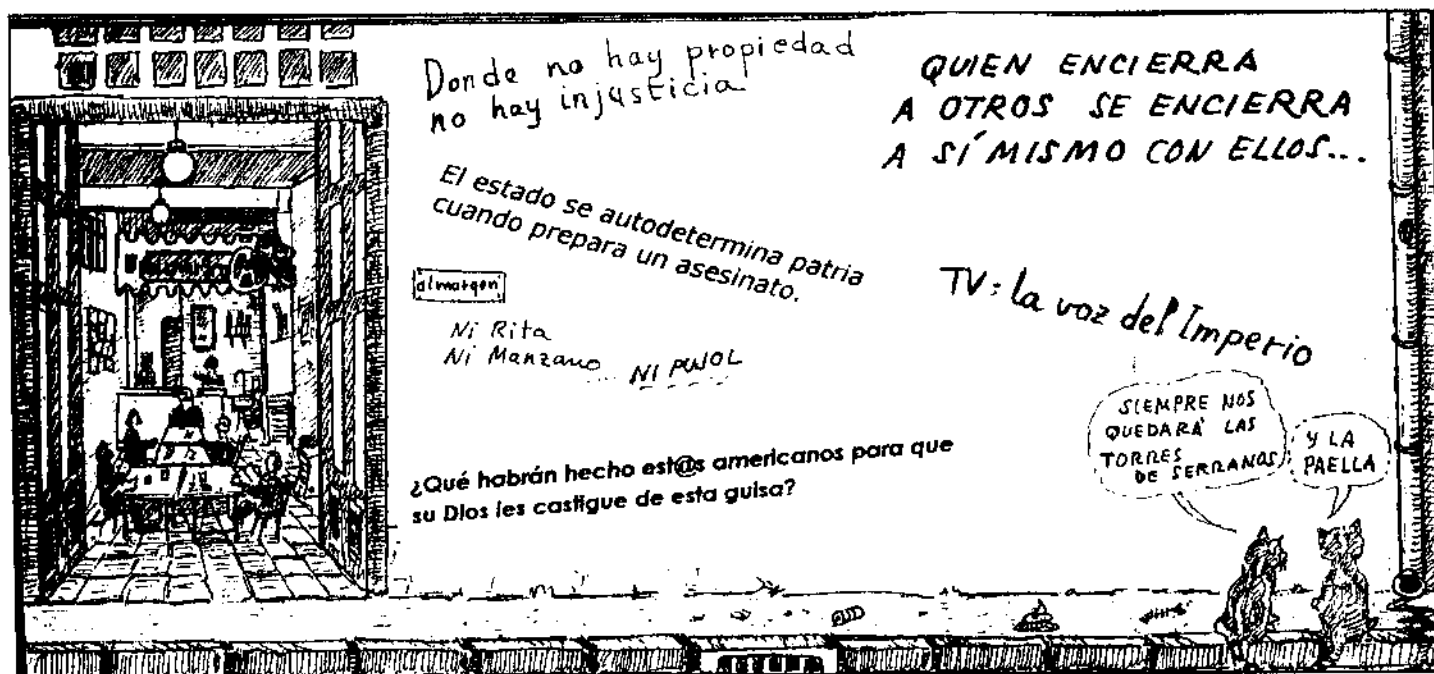 Donde no hay propiedad
no hay injusticia
QUIEN ENCIERRA
A OTROS SE ENCIERRA
A SÍ MISMO CON ELLOS...
El estado se autodetermina patria
cuando prepara un asesinato.
almargen
Ni Rita
Ni Manzano ... NI PUJOL
TV: la voz del Imperio
¿Qué habrán hecho est@s americanos para que
su Dios les castigue de esta guisa?
SIEMPRE NOS
QUEDARÁ LAS
TORRES
DE SERRANOS
Y LA
PAELLA